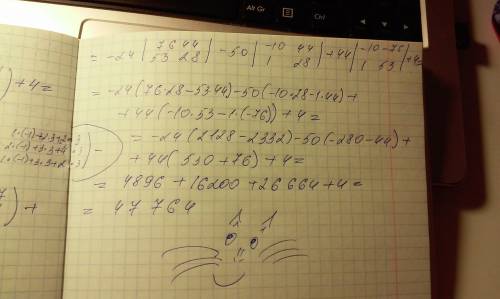 Alt Gr
Ctrl
) +4=
= -24 | 76 44 | -50 | -10 44 | +44 | -10 -76 | +4=
53 28 1 28 1 53
= -24(76·28-53·44)-50(-10·28-1·44)+
+44(-10·53-1·(-76))+4=
= -24(2128-2332)-50(-280-44)+
+44(530+76)+4=
= 4896+16200+26664+4=
= 47764
) +